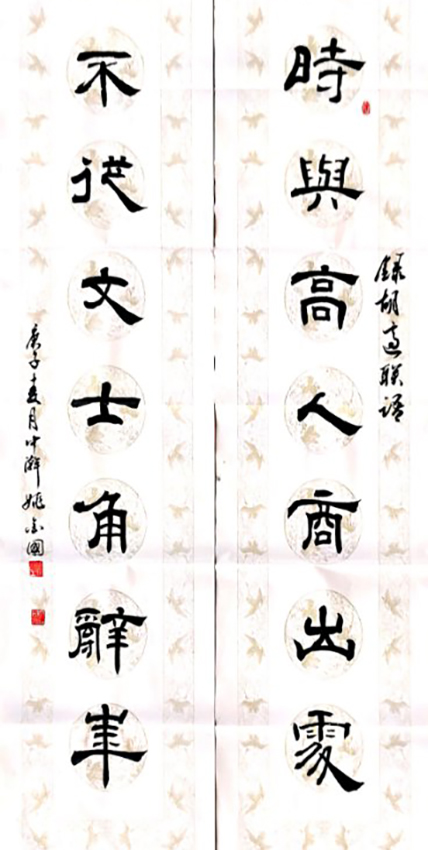 錄胡適聯語
時與高人商出處
不從文士角辭華
庚子十月中澣姚國